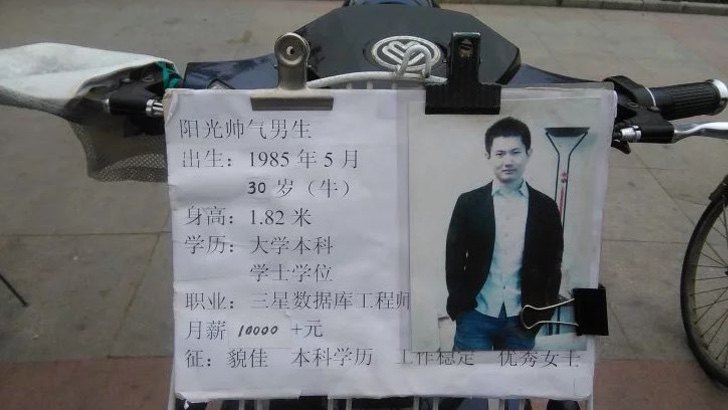 阳光帅气男生
出生：1985 年 5 月
30 岁（牛）
身高：1.82 米
学历：大学本科
学士学位
职业：三星数据库工程师
月薪 10000 +元
征：貌佳 本科学历 工作稳定 优秀女士